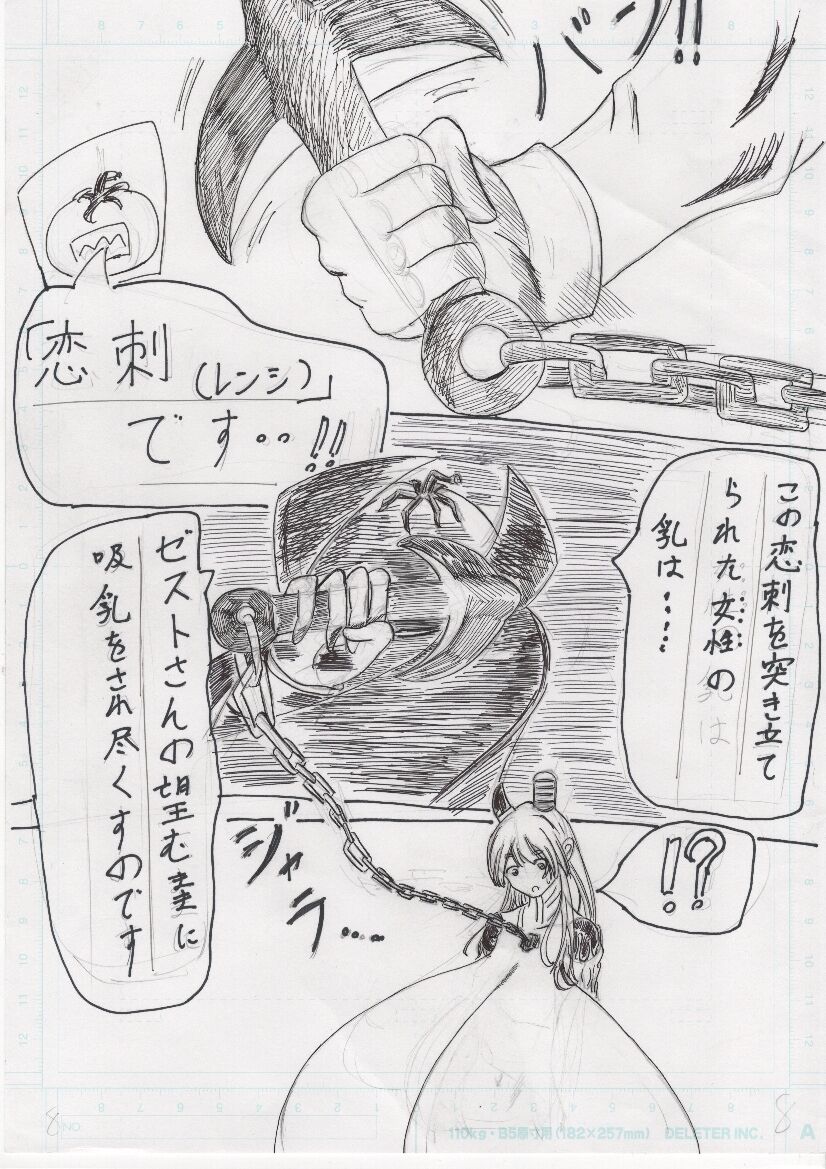 バーン!!
「恋刺
(レンシ)」
です‥!!
この恋刺を突き立て
られた女性の
乳は……
ゼストさんの望むままに
吸乳をされ尽くすのです
ジャラ…
!?
8
8
NO.
110kg・B5原寸用(182×257mm) DELETER INC. A